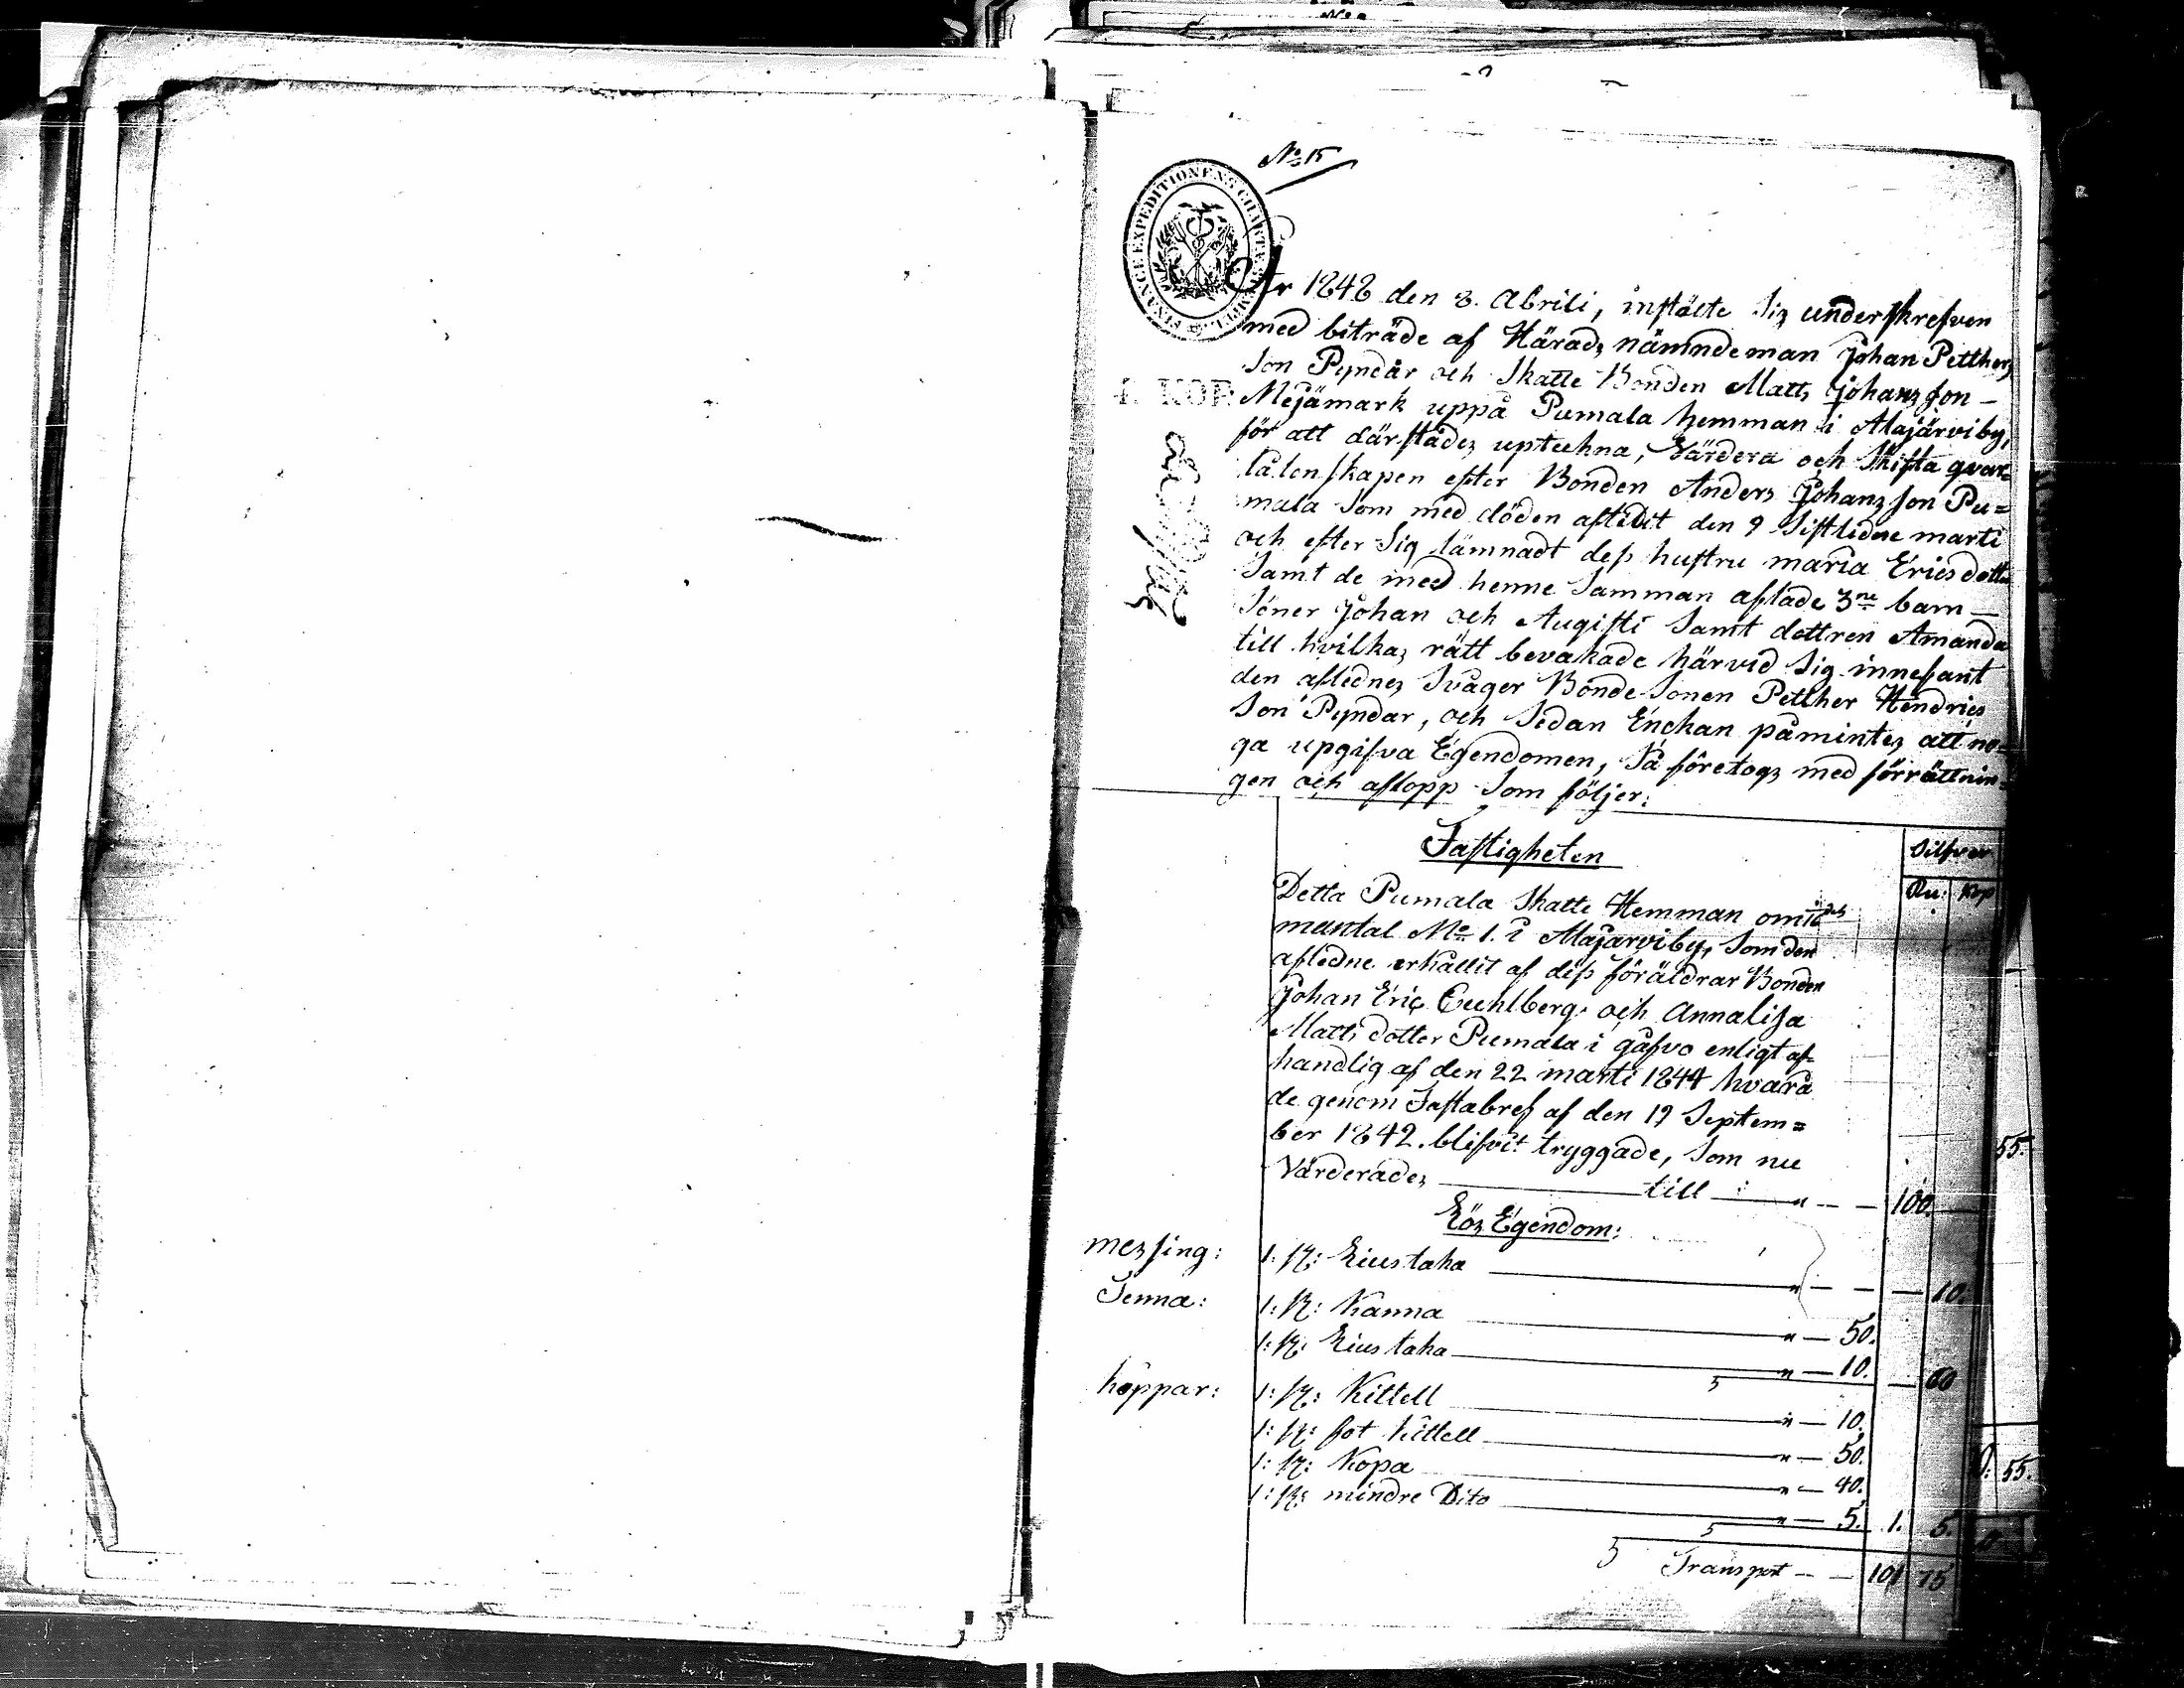 No 15
FINANCE EXPEDITIONENS CHARTÆ
År 1848 den 8. Abrili, instälte Sig underskrefven
med biträde af Härads nämndeman Johan Petthers
Son Pyndär och Skatte Bonden Matts Johans son –
4. KOP.
Mejämark uppå Pumala hemman i Alajärviby,
för att därstädes upteckna, Värdera och Skifta qvar=
låtenskapen efter Bonden Anders Johans son Pu=
mala Som med döden aflidit den 9 Sistledne marti
och efter Sig lämnadt dess hustru maria Erics dotter
Samt de med henne Samman aflade 3ne barn –
Söner Johan och Augisti Samt dottren Amanda
till hvilkas rätt bevakade härvid Sig innefant
den aflednes Svåger Bonde Sonen Petther Hendrics
Son Pyndar, och Sedan Enckan påmintes att no=
ga upgifva Egendomen, Så företogs med förrättnin=
gen och aflopp Som följer:
Fastigheten
Silfver
Ru: Kop
Detta Pumala Skatte Hemman om
mantal No 1. i Alajarviby, Som den
afledne erhållit af dess föräldrar Bonden
Johan Eric Cuhlberg och Annalisa
Matts dotter Pumala i gåfvo enligt af=
handlig af den 22 marti 1844 hvarå
de genom Fastabref af den 19 Septem=
ber 1842. blifvit tryggade, Som nu
Värderades till " 100.
55.
Lös Egendom:
messing: 1: st: Liustaka " 10.
Tenna: 1: st: Kanna " 50.
1: st: Liustaka " 10. 60
koppar: 1: st: Kittell " 10.
1: st: fot kittell " 50.
1: st: Kopa " 40.
55.
1: st: mindre Dito " 5. 1. 5.
Transport 101 75